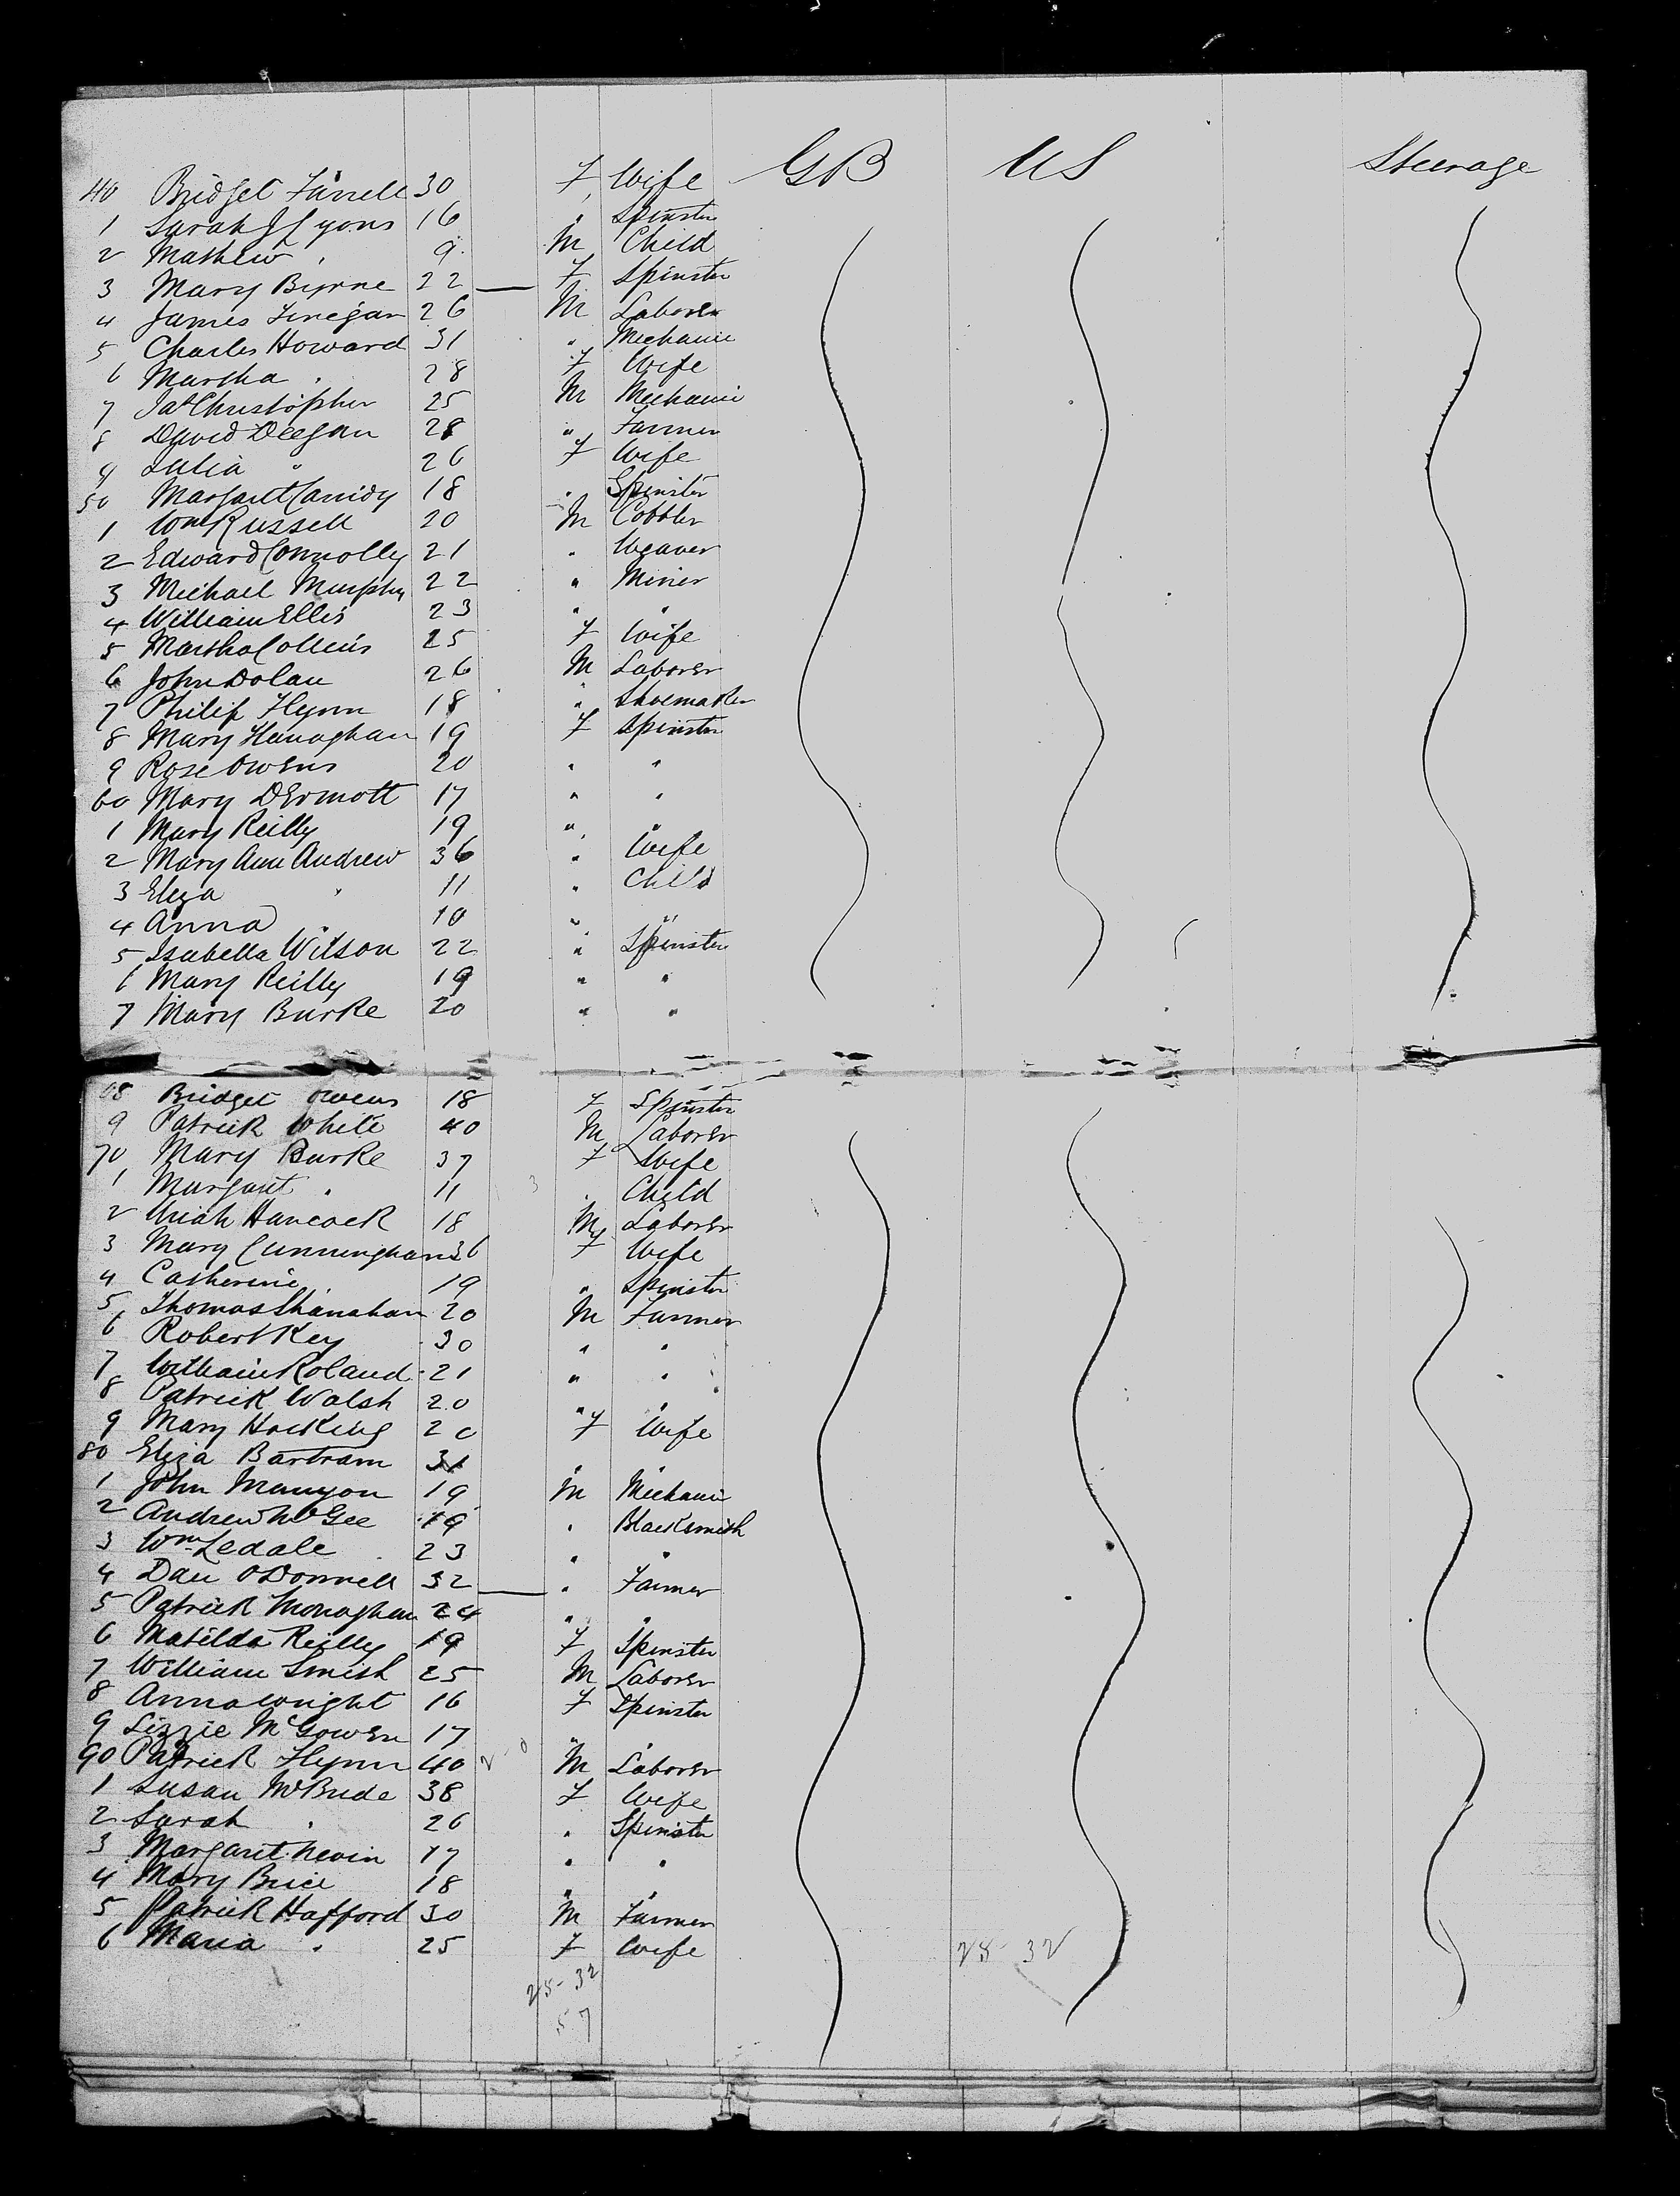 GB US Steerage
40 Bridget Farrell 30 F Wife
1 Sarah J Lyons 16 " Spinster
2 Mathew " 9 M Child
3 Mary Byrne 22 — F Spinster
4 James Finegan 26 M Laborer
5 Charles Howard 31 " Mechanic
6 Martha " 28 F Wife
7 Jas Christopher 25 M Mechanic
8 David Deegan 28 " Farmer
9 Julia " 26 F Wife
50 Margaret Cassidy 18 " Spinster
1 Wm Russell 20 M Cobbler
2 Edward Connolly 21 " Weaver
3 Michael Murphy 22 " Miner
4 William Ellis 23 " "
5 Martha Collins 25 F Wife
6 John Dolan 26 M Laborer
7 Philip Flynn 18 " Shoemaker
8 Mary Hanaghan 19 F Spinster
9 Rose Owens 20 " "
60 Mary DErmott 17 " "
1 Mary Reilly 19 " "
2 Mary Ann Andrew 36 " Wife
3 Eliza " 11 " Child
4 Anna " 10 " "
5 Isabella Wilson 22 " Spinster
6 Mary Reilly 19 " "
7 Mary Burke 20 " "
68 Bridget Owens 18 F Spinster
9 Patrick White 40 M Laborer
70 Mary Burke 37 F Wife
1 Margaret " 11 " Child
2 Uriah Hancock 18 M Laborer
3 Mary Cunningham 36 F Wife
4 Catherine " 19 " Spinster
5 Thomas Shanahan 20 M Farmer
6 Robert Key 30 " "
7 William Roland 21 " "
8 Patrick Walsh 20 " "
9 Mary Hocking 20 F Wife
80 Eliza Bartram 31 " "
1 John Manyon 19 M Mechanic
2 Andrew McGee 19 " Blacksmith
3 Wm Ledale 23 " "
4 Dan ODonnell 32 — " Farmer
5 Patrick Monaghan 24 " "
6 Matilda Reilly 19 F Spinster
7 William Smith 25 M Laborer
8 Anna Wright 16 F Spinster
9 Lizzie McGowen 17 " "
90 Patrick Flynn 40 M Laborer
1 Susan McBride 38 F Wife
2 Sarah " 26 " Spinster
3 Margaret Nevin 17 " "
4 Mary Brice 18 " "
5 Patrick Hafford 30 M Farmer
6 Maria " 25 F Wife
25-32 25-32
57